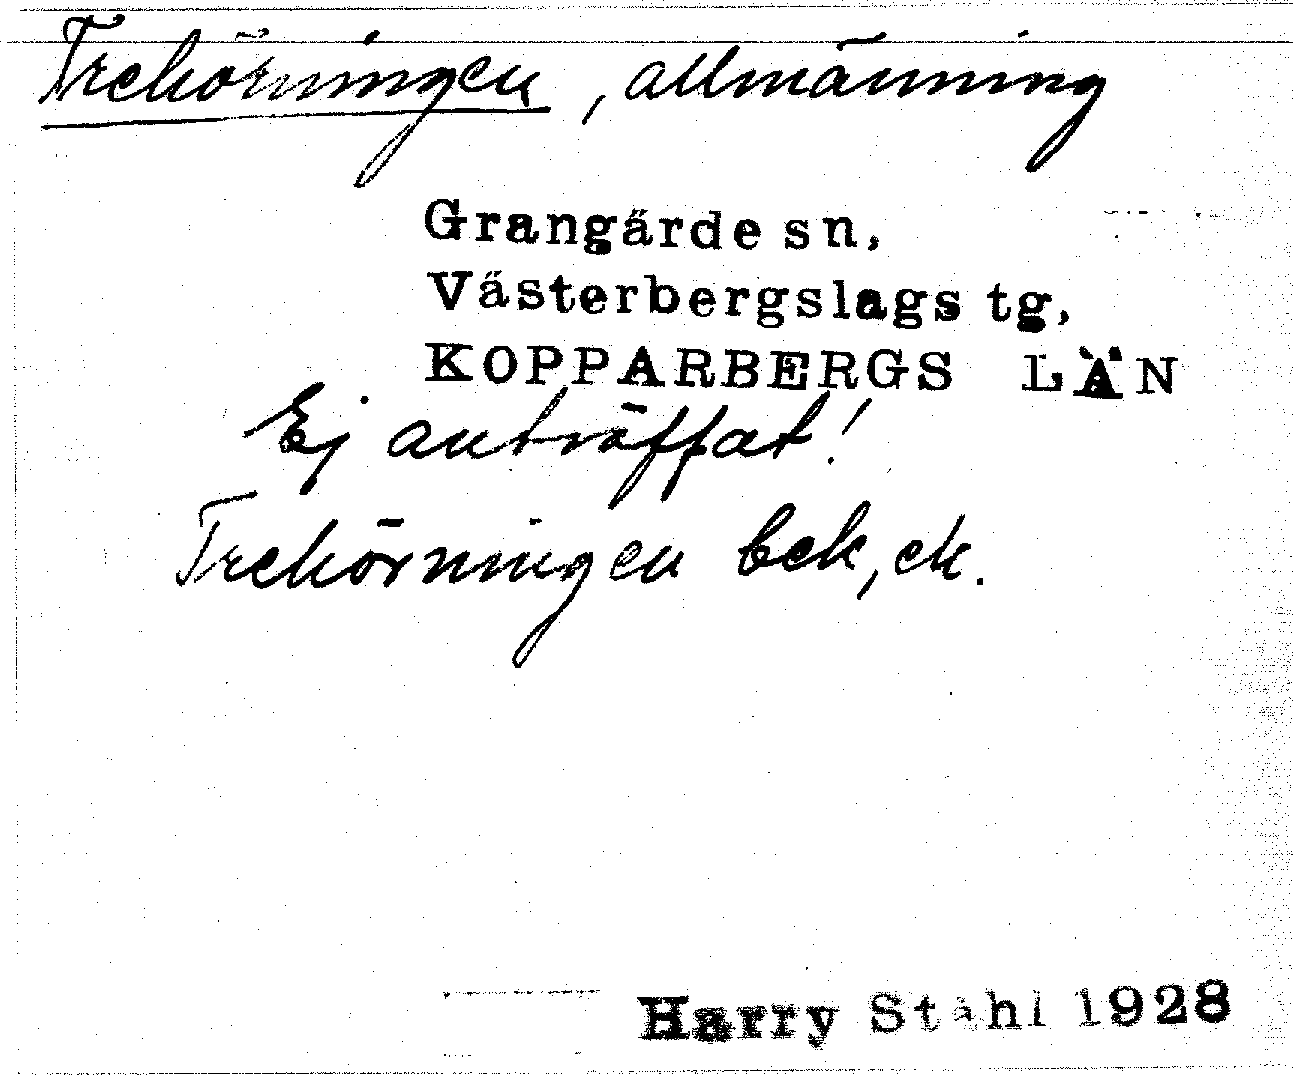 Trehörningen, allmänning
Grangärde sn,
Västerbergslags tg,
KOPPARBERGS LÄN
Ej anträffat!
Trehörningen bek, ek.
Harry Ståhl 1928